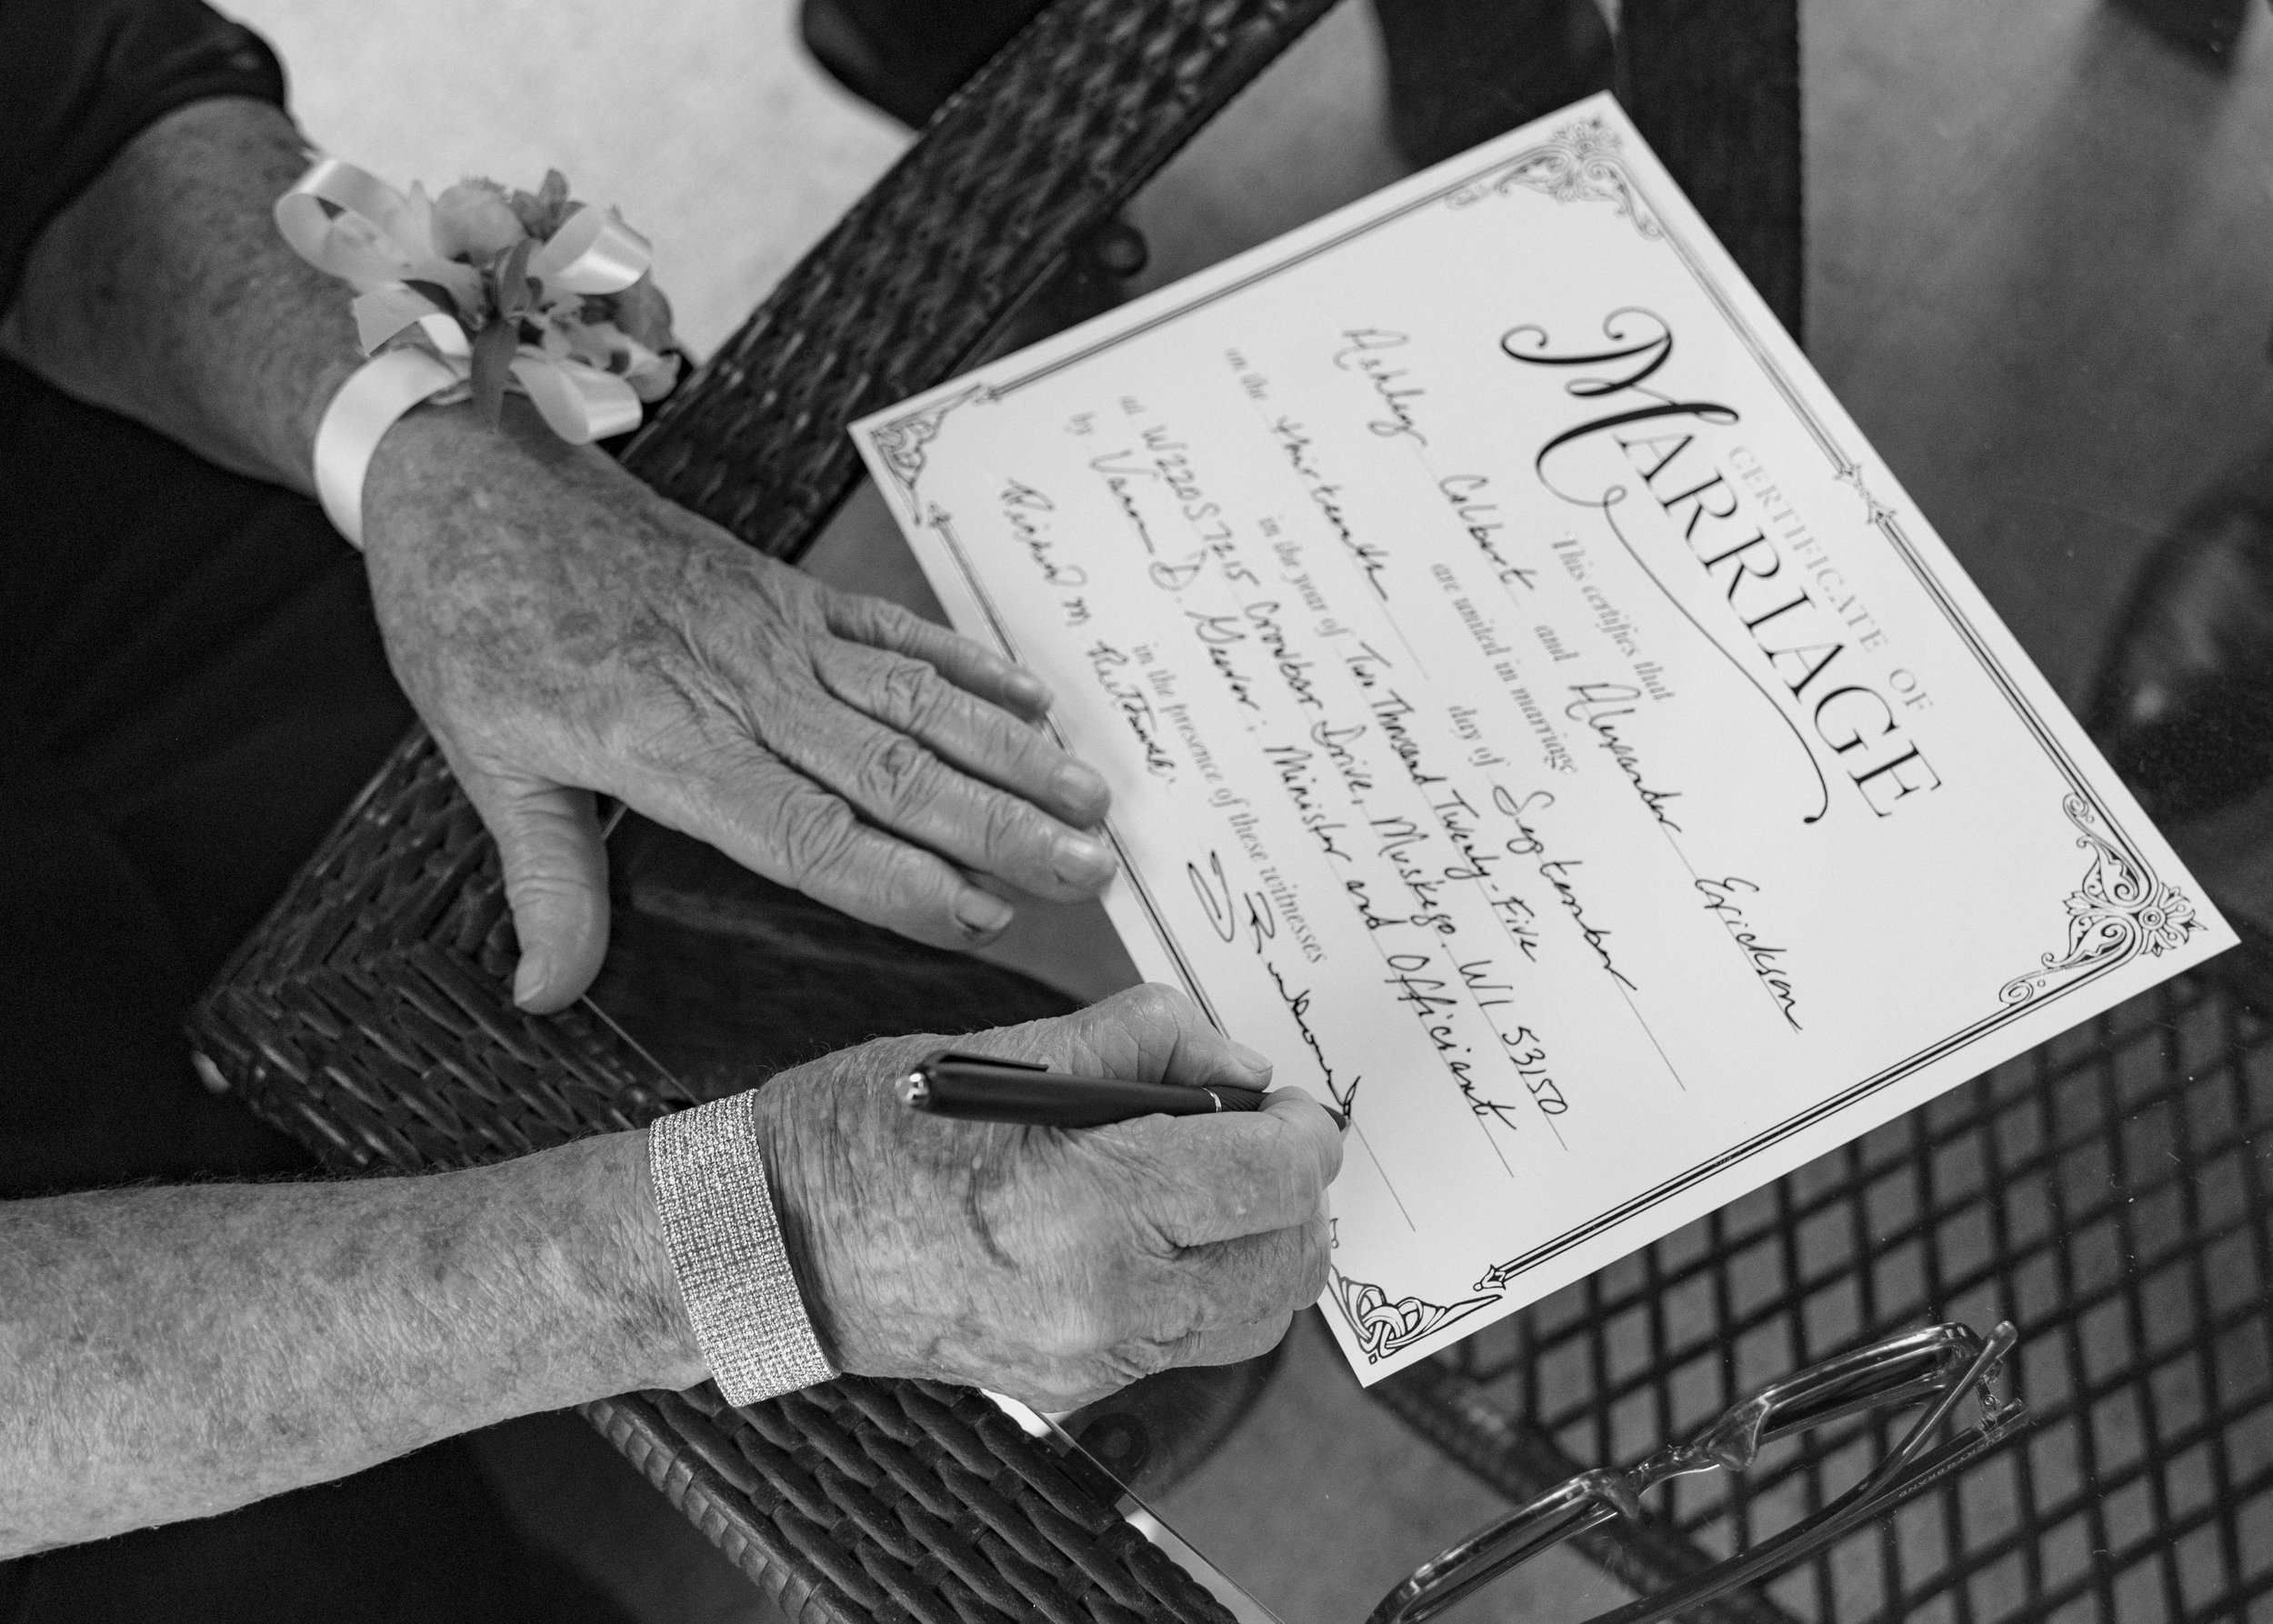 CERTIFICATE OF
MARRIAGE
This certifies that
Ashley Colbert and Alexander Erickson
are united in marriage
on the thirteenth day of September
in the year of Two Thousand Twenty-Five
at W220S7215 Crowbar Drive, Muskego, WI 53150
by D. : Minister and Officiant
in the presence of these witnesses
Richard M